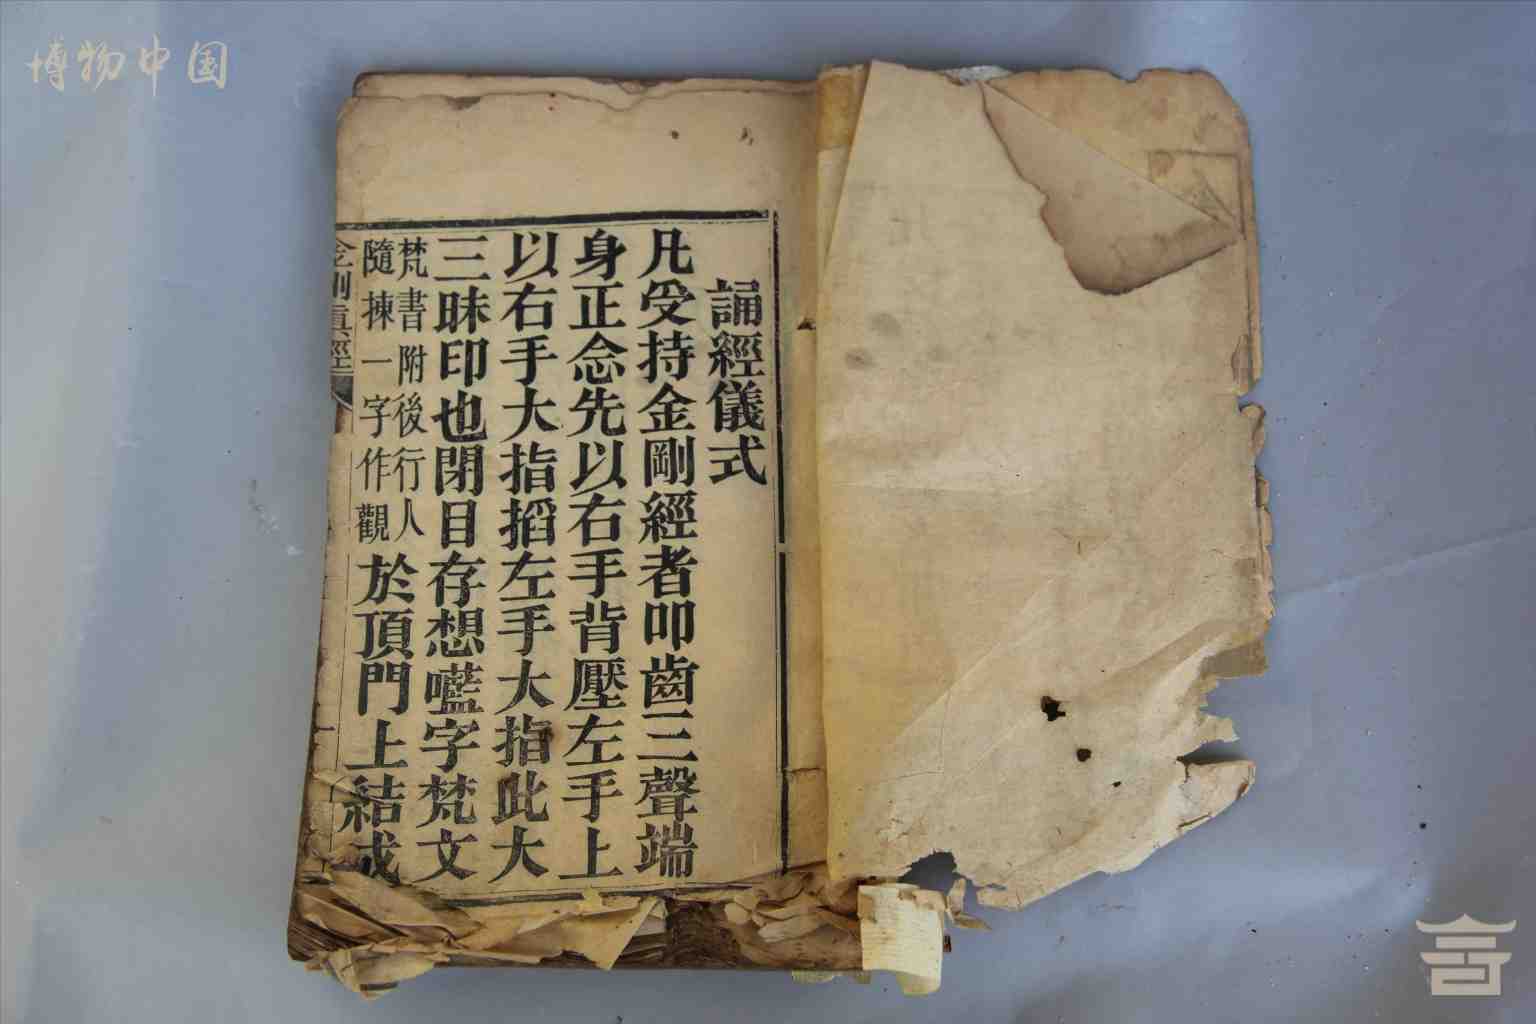 博物中国
誦經儀式
凡受持金剛經者叩齒三聲端
身正念先以右手背壓左手上
以右手大指搯左手大指此大
三昧印也閉目存想㘕字梵文
梵書附後行人
隨揀一字作觀
於頂門上結成
金剛真經